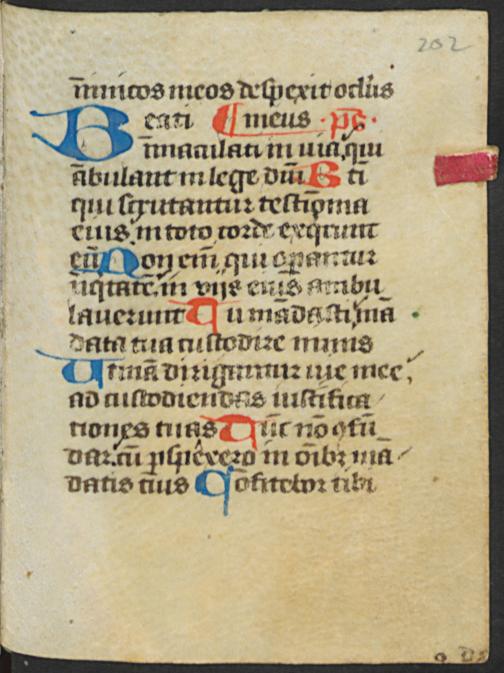 202
inimicos meos despexit oclus
Beati meus · ps ·
inmaculati in via, qui
ābulant in lege dn̄i Bti
qui scrutantur testiōnia
eius, in toto corde exqrunt
eū Non em̄, qui opantur
iiqtatē, in vijs eius ambu
lauerunt Tu mādasti, mā
data tua custodire nimis
Utinā dirigantur vie mee,
ad custodiendas iustifica
tiones tuas Tūc nō ꝯfū
dar, cū pspexero in oībꝫ mā
datis tuis Cōfitebor tibi